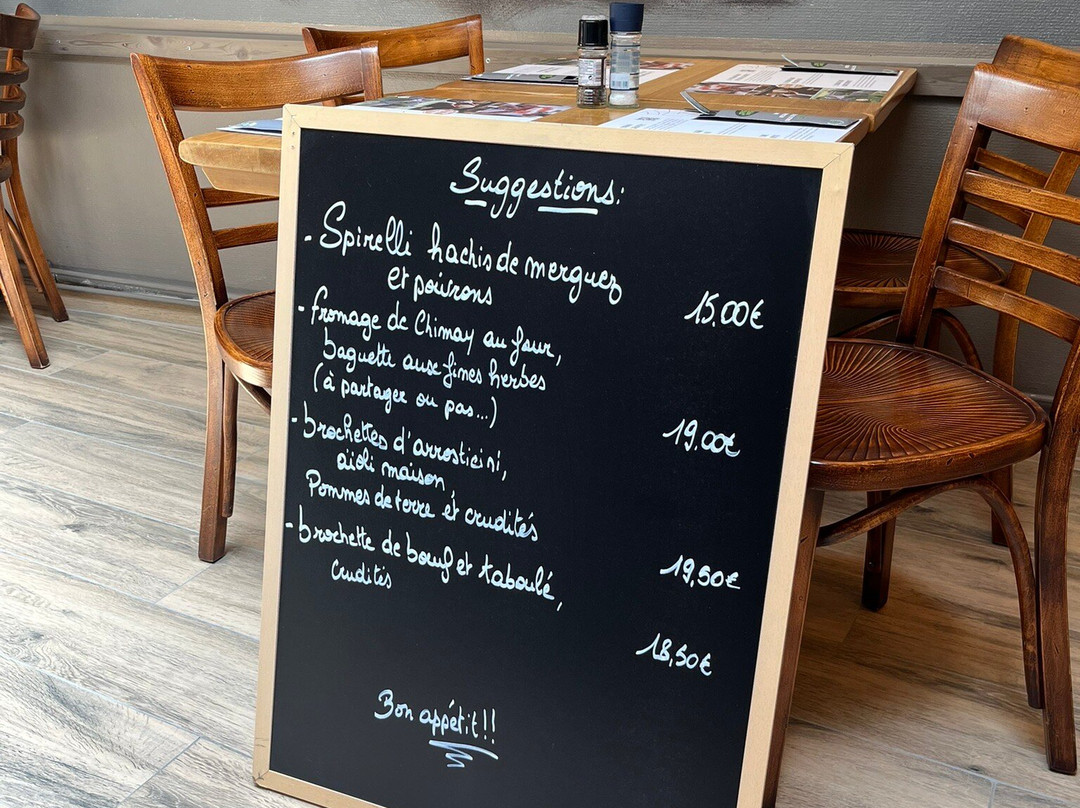 Suggestions:
- Spirelli hachis de merguez
et poivrons
15.00€
- fromage de Chimay au four,
baguette aux fines herbes
(à partager ou pas...)
19.00€
- brochettes d'arrosticini,
aïoli maison,
Pommes de terre et crudités
19,50€
- brochette de bœuf et taboulé,
crudités
18,50€
Bon appétit!!